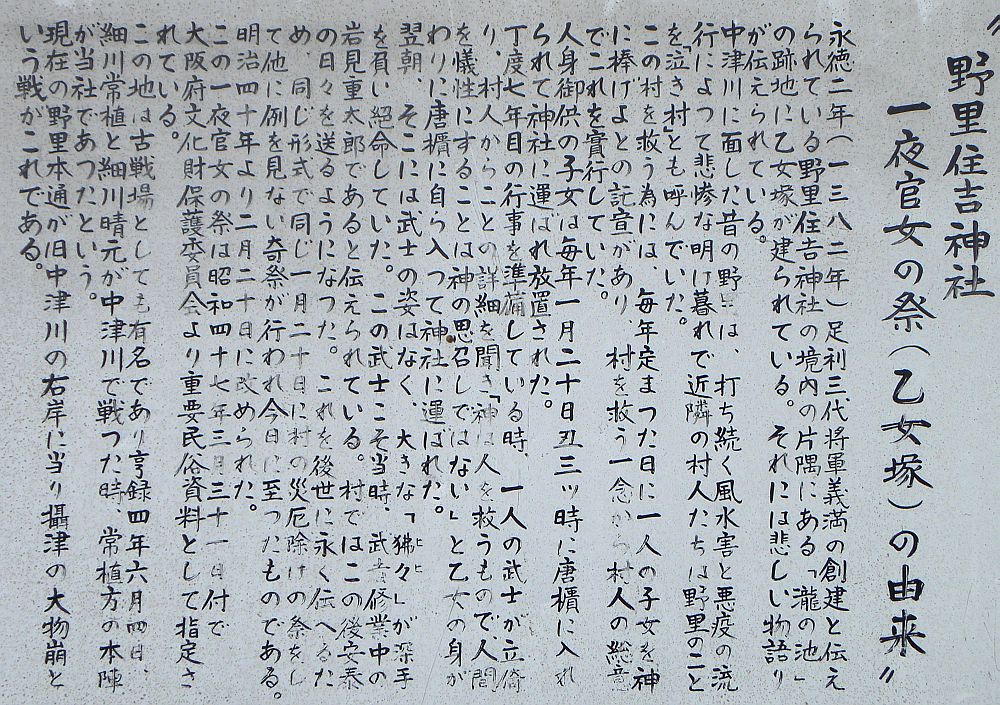 〃野里住吉神社
一夜官女の祭(乙女塚)の由来〃
永徳二年(一三八二年)足利三代将軍義満の創建と伝え
られている野里住吉神社の境内の片隅にある「瀧の池」
の跡地に乙女塚が建られている。それには悲しい物語り
が伝えられている。
中津川に面した昔の野里は、打ち続く風水害と悪疫の流
行によつて悲惨な明け暮れで近隣の村人たちは野里のこと
を「泣き村」とも呼んでいた。
この村を救う為には、毎年定まつた日に一人の子女を神
に捧げよとの託宣があり 村を救う一念から村人の総意
でこれを實行していた。
人身御供の子女は毎年一月二十日丑三ッ時に唐櫃に入れ
られて神社に運ばれ放置された。
丁度七年目の行事を準備している時、一人の武士が立倚
り、村人からことの詳細を聞き「神は人を救うもので人間
を犠性にすることは神の思召しではない」と乙女の身が
わりに唐櫃に自ら入つて神社に運ばれた。
翌朝、そこには武士の姿はなく、大きな「狒々」が深手
を負い絶命していた。この武士こそ当時、武者修業中の
岩見重太郎であると伝えられている。村ではこの後安泰
の日々を送るようになつた。これを後世に永く伝へるた
め、同じ形式で同じ一月二十日に村の災厄除けの祭をし
て他に例を見ない奇祭が行われ今日に至つたものである。
明治四十年より二月二十日に改められた。
この一夜官女の祭は昭和四十七年三月三十一日付で
大阪府文化財保護委員会より重要民俗資料として指定さ
れている。
この地は古戦場としても有名であり亨録四年六月四日、
細川常植と細川晴元が中津川で戦つた時、常植方の本陣
が当社であつたという。
現在の野里本通が旧中津川の右岸に当り攝津の大物崩と
いう戦がこれである。